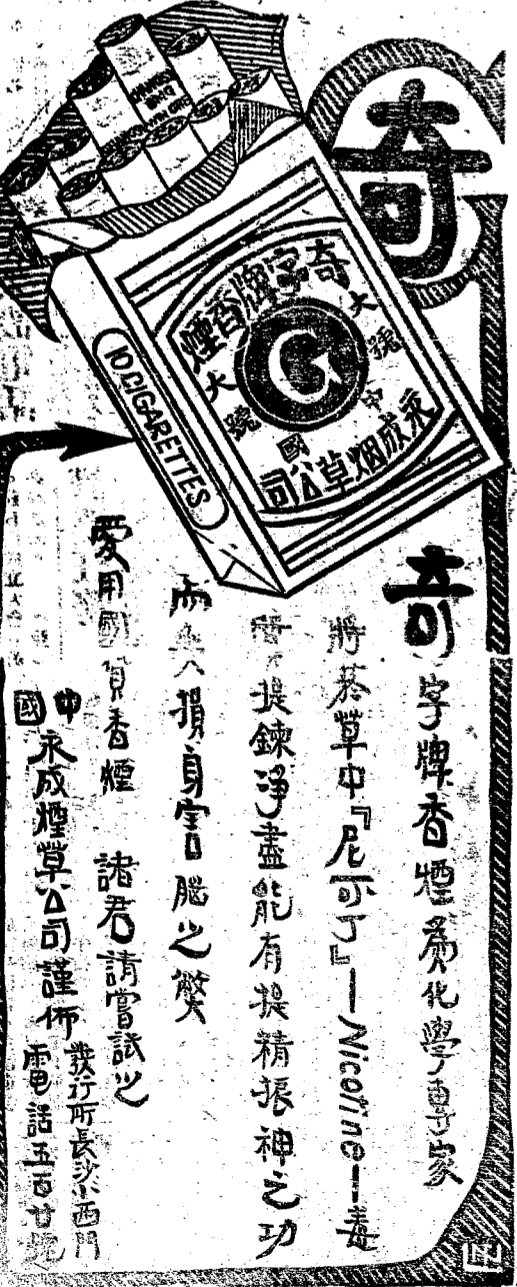 奇
奇字牌香煙
大號
大號
中國
永成烟草公司
10 CIGARETTES
奇字牌香煙爲化學專家
將菸草中『尼可丁』—Nicotine—毒
質提鍊淨盡能有提精振神之功
而無損身害腦之弊
愛用國貨香煙 諸君請嘗試之
中國永成煙草公司謹佈
發行所長沙小西門
電話五百廿號